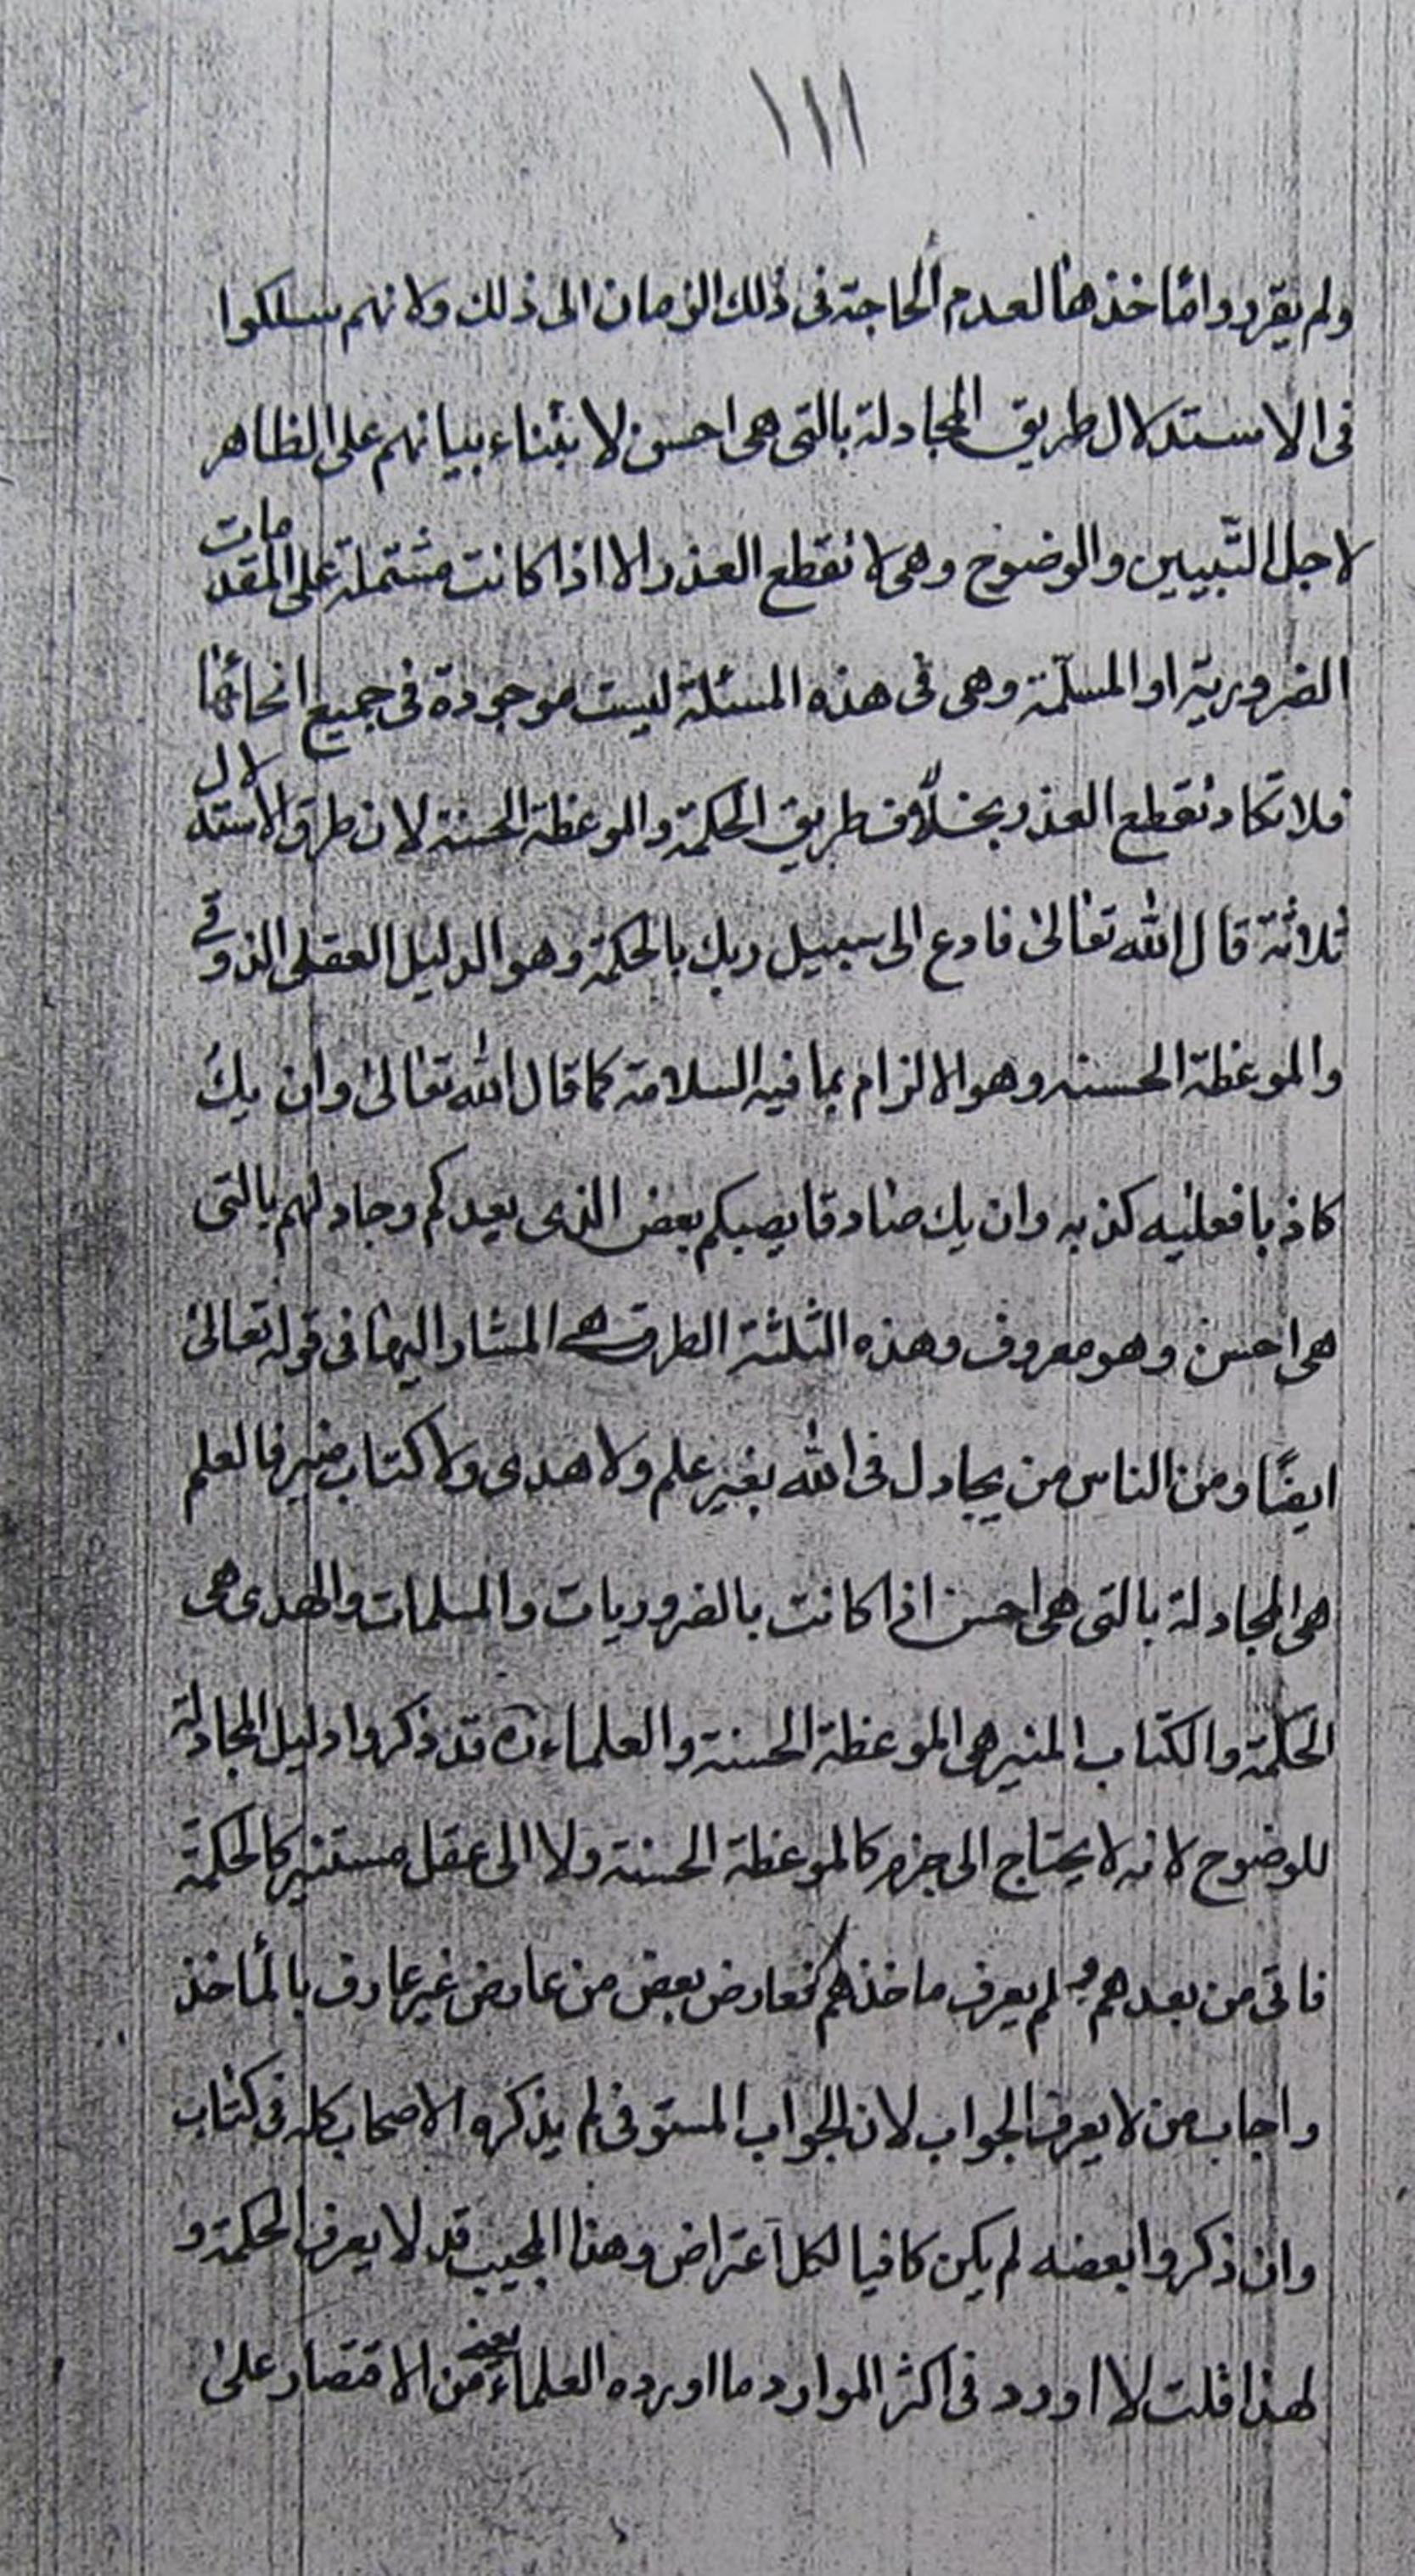 ١١١
ولم يقرروا مأخذها لعدم الحاجة فى ذلك الزمان الى ذلك ولانهم سلكوا
فى الاستدلال طريق المجادلة بالتى هى احسن لابتناء بيانهم على الظاهر
لاجل التبيين والوضوح وهى لا تقطع العذر الا اذا كانت مشتملة على المقدمات
الضرورية او المسلّمة وهى فى هذه المسئلة ليست موجودة فى جميع انحائها
فلا تكاد تقطع العذر بخلاف طريق الحكمة والموعظة الحسنة لان طرق الاستدلال
ثلاثة قال الله تعالى فادع الى سبيل ربك بالحكمة وهو الدليل العقلى الذوقى
والموعظة الحسنه وهو الالزام بما فيه السلامة كما قال الله تعالى وان يك
كاذبا فعليه كذبه وان يك صادقا يصبكم بعض الذى يعدكم وجادلهم بالتى
هى احسن وهو معروف وهذه الثلثة الطرق هى المشار اليها فى قوله تعالى
ايضًا ومن الناس من يجادل فى الله بغير علم ولا هدى ولا كتاب منير فالعلم
هى المجادلة بالتى هى احسن اذا كانت بالضروريات والمسلمات والهدى هى
الحكمة والكتاب المنير هى الموعظة الحسنة والعلماء ره قد ذكروا دليل المجادلة
للوضوح لانه لا يحتاج الى جزم كالموعظة الحسنة ولا الى عقل مستنير كالحكمة
فاتى من بعدهم ولم يعرف ماخذهم فعارض بعض من عارض غير عارف بالمأخذ
واجاب من لا يعرف الجواب لان الجواب المستوفى لم يذكره الاصحاب كله فى كتاب
وان ذكروا بعضه لم يكن كافيا لكل اعتراض وهذا المجيب قد لا يعرف الحكمة و
لهذا قلت لا اورد فى اكثر الموارد ما اورده العلماء يعنى من الاقتصار على